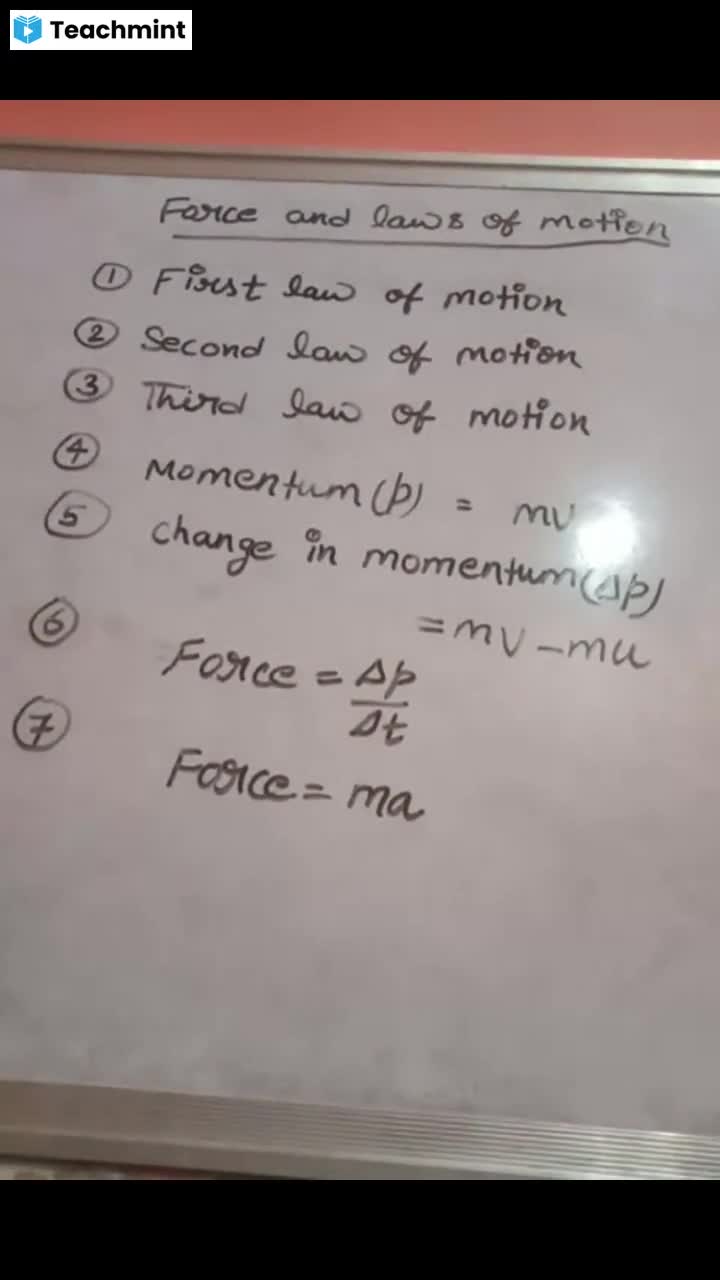 Teachmint
Force and laws of motion
① First law of motion
② Second law of motion
③ Third law of motion
④ Momentum (p) = mv
⑤ change in momentum (Δp)
= mv - mu
⑥ Force = Δp
Δt
⑦ Force = ma